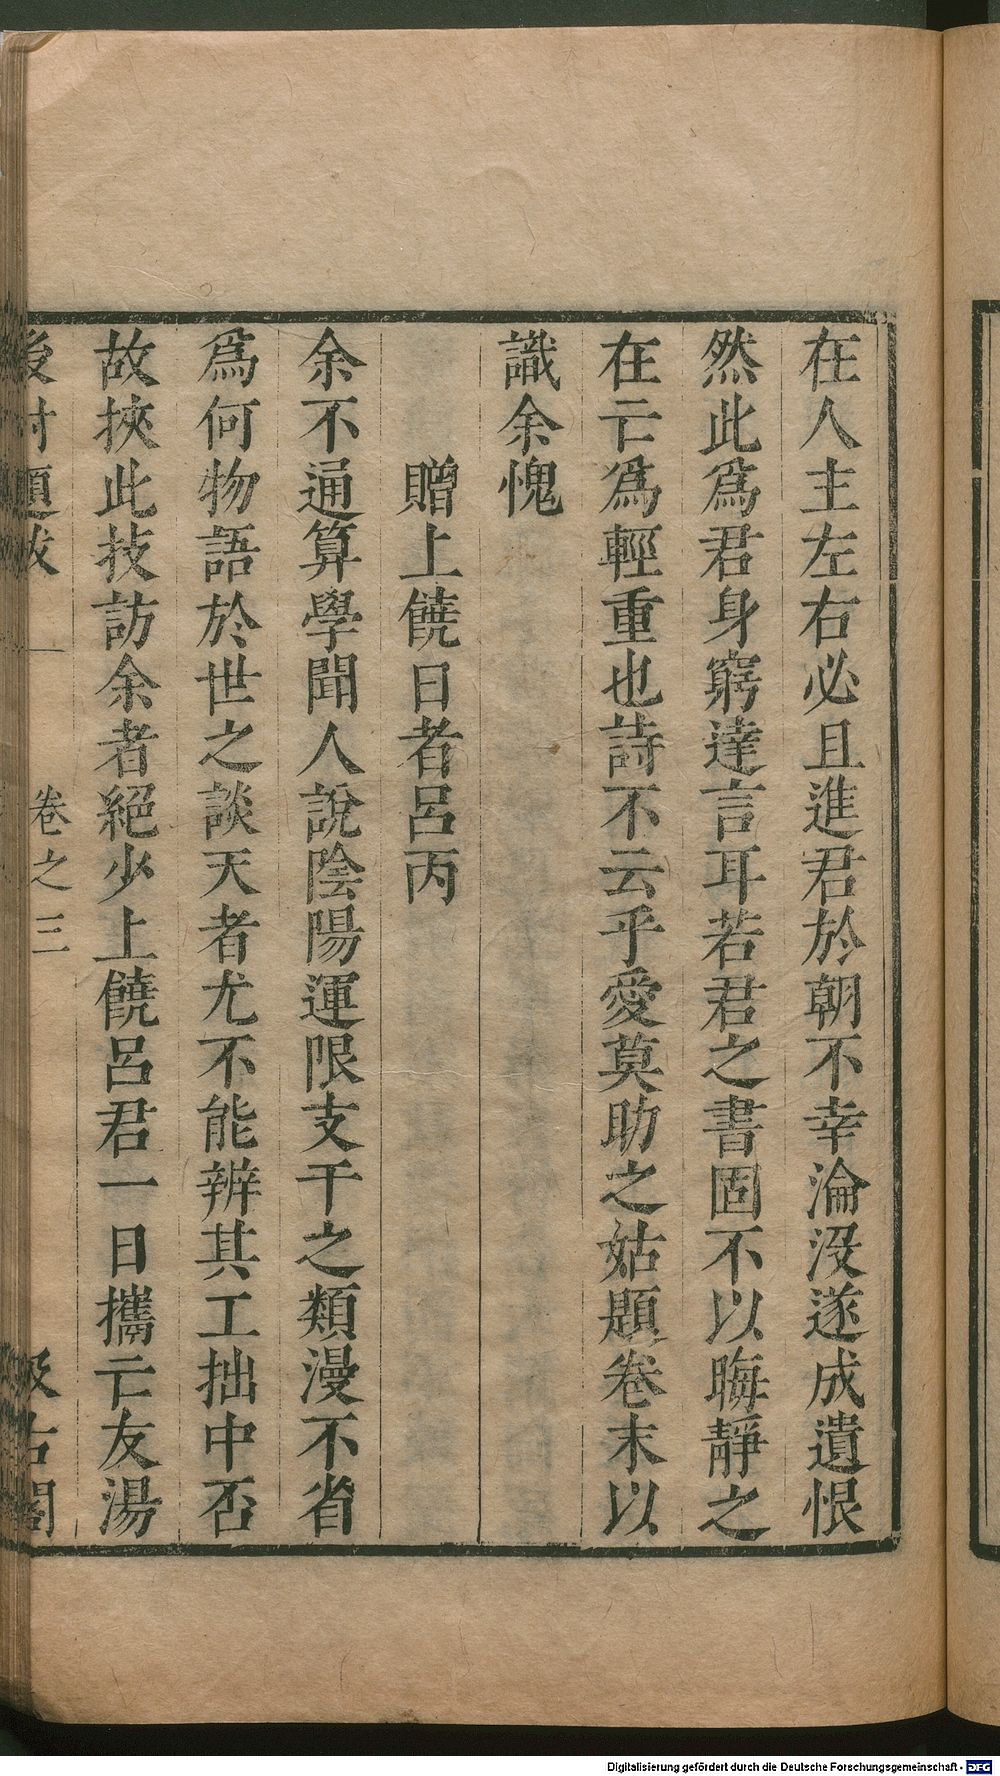 在人主左右必且進君於朝不幸淪沒遂成遺恨
然此爲君身窮達言耳若君之書固不以晦靜之
在亡爲輕重也詩不云乎愛莫助之姑題卷末以
識余愧
贈上饒日者呂丙
余不通算學聞人說陰陽運限支干之類漫不省
爲何物語於世之談天者尤不能辨其工拙中否
故挾此技訪余者絕少上饒呂君一日攜亡友湯
後村題跋 卷之三 汲古閣
Digitalisierung gefördert durch die Deutsche Forschungsgemeinschaft - DFG